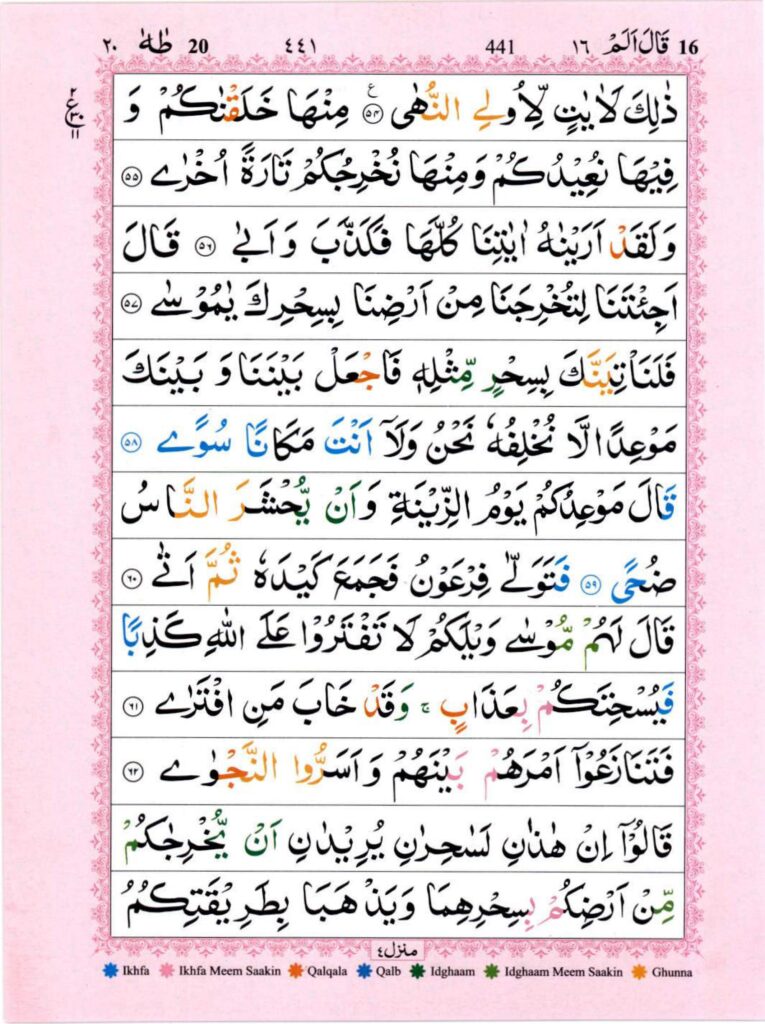 ٢٠ طٰهٰ 20 ٤٤١ 441 قَالَ اَلَمْ ١٦ 16
ذٰلِكَ لَاٰيٰتٍ لِّاُولِي النُّهٰى ۝٥٤ ع مِنْهَا خَلَقْنٰكُمْ وَ
٢
ع
٣٠
١١
فِيْهَا نُعِيْدُكُمْ وَمِنْهَا نُخْرِجُكُمْ تَارَةً اُخْرٰى ۝٥٥
وَلَقَدْ اَرَيْنٰهُ اٰيٰتِنَا كُلَّهَا فَكَذَّبَ وَاَبٰى ۝٥٦ قَالَ
اَجِئْتَنَا لِتُخْرِجَنَا مِنْ اَرْضِنَا بِسِحْرِكَ يٰمُوْسٰى ۝٥٧
فَلَنَاْتِيَنَّكَ بِسِحْرٍ مِّثْلِهٖ فَاجْعَلْ بَيْنَنَا وَبَيْنَكَ
مَوْعِدًا لَّا نُخْلِفُهٗ نَحْنُ وَلَاۤ اَنْتَ مَكَانًا سُوًى ۝٥٨
قَالَ مَوْعِدُكُمْ يَوْمُ الزِّيْنَةِ وَاَنْ يُّحْشَرَ النَّاسُ
ضُحًى ۝٥٩ فَتَوَلّٰى فِرْعَوْنُ فَجَمَعَ كَيْدَهٗ ثُمَّ اَتٰى ۝٦٠
قَالَ لَهُمْ مُّوْسٰى وَيْلَكُمْ لَا تَفْتَرُوْا عَلَى اللّٰهِ كَذِبًا
فَيُسْحِتَكُمْ بِعَذَابٍ ۚ وَقَدْ خَابَ مَنِ افْتَرٰى ۝٦١
فَتَنَازَعُوْۤا اَمْرَهُمْ بَيْنَهُمْ وَاَسَرُّوا النَّجْوٰى ۝٦٢
قَالُوْۤا اِنْ هٰذٰنِ لَسٰحِرٰنِ يُرِيْدٰنِ اَنْ يُّخْرِجٰكُمْ
مِّنْ اَرْضِكُمْ بِسِحْرِهِمَا وَيَذْهَبَا بِطَرِيْقَتِكُمُ
منزل ٤
Ikhfa Ikhfa Meem Saakin Qalqala Qalb Idghaam Idghaam Meem Saakin Ghunna